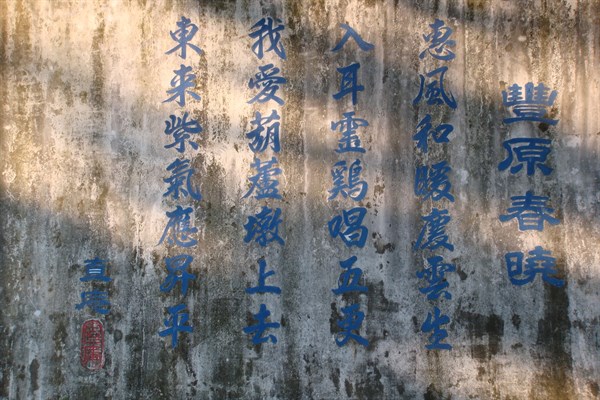 豐原春曉
惠風和暖慶雲生
入耳靈鷄唱五更
我愛葫蘆墩上去
東来紫氣應昇平